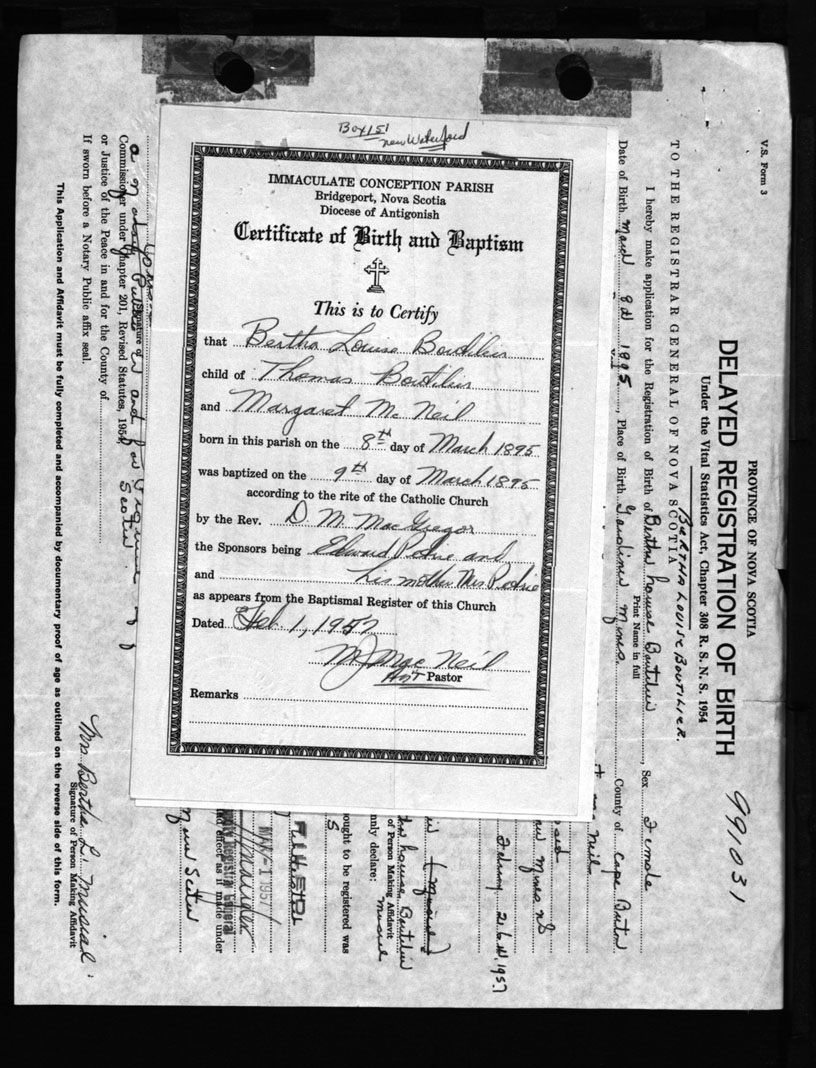 Box 151
New Waterford
IMMACULATE CONCEPTION PARISH
Bridgeport, Nova Scotia
Diocese of Antigonish
Certificate of Birth and Baptism
This is to Certify
that Bertha Louise Boutilier
child of Thomas Boutilier
and Margaret Mc Neil
born in this parish on the 8th day of March 1895
was baptized on the 9th day of March 1895
according to the rite of the Catholic Church
by the Rev. D. M. MacGregor
the Sponsors being Edward Petrie and
and his mother Mrs Petrie
as appears from the Baptismal Register of this Church
Dated Feb. 1, 1957
MJ Mac Neil
Asst Pastor
Remarks
V.S. Form 3
PROVINCE OF NOVA SCOTIA
DELAYED REGISTRATION OF BIRTH
Under the Vital Statistics Act, Chapter 308 R. S. N. S. 1954
991031
TO THE REGISTRAR GENERAL OF NOVA SCOTIA
BERTHA LOUISE BOUTILIER.
I hereby make application for the Registration of Birth of Bertha Louise Boutilier, Sex Female
Print Name in full
Date of Birth March 8th 1895, Place of Birth Gardiner Mines. County of Cape Breton
Neil
Mines NS
1957
Louise Boutilier
of Person Making Affidavit
nnly declare:
ought to be registered was
5
FILED
MAY 1 1957
Registrar General
nd effect as if made under
Signature of
a Notary Public in and for
Scotia
Commissioner under Chapter 201, Revised Statutes, 1954
or Justice of the Peace in and for the County of
If sworn before a Notary Public affix seal.
Mrs Bertha L. Musial
Signature of Person Making Affidavit
This Application and Affidavit must be fully completed and accompanied by documentary proof of age as outlined on the reverse side of this form.